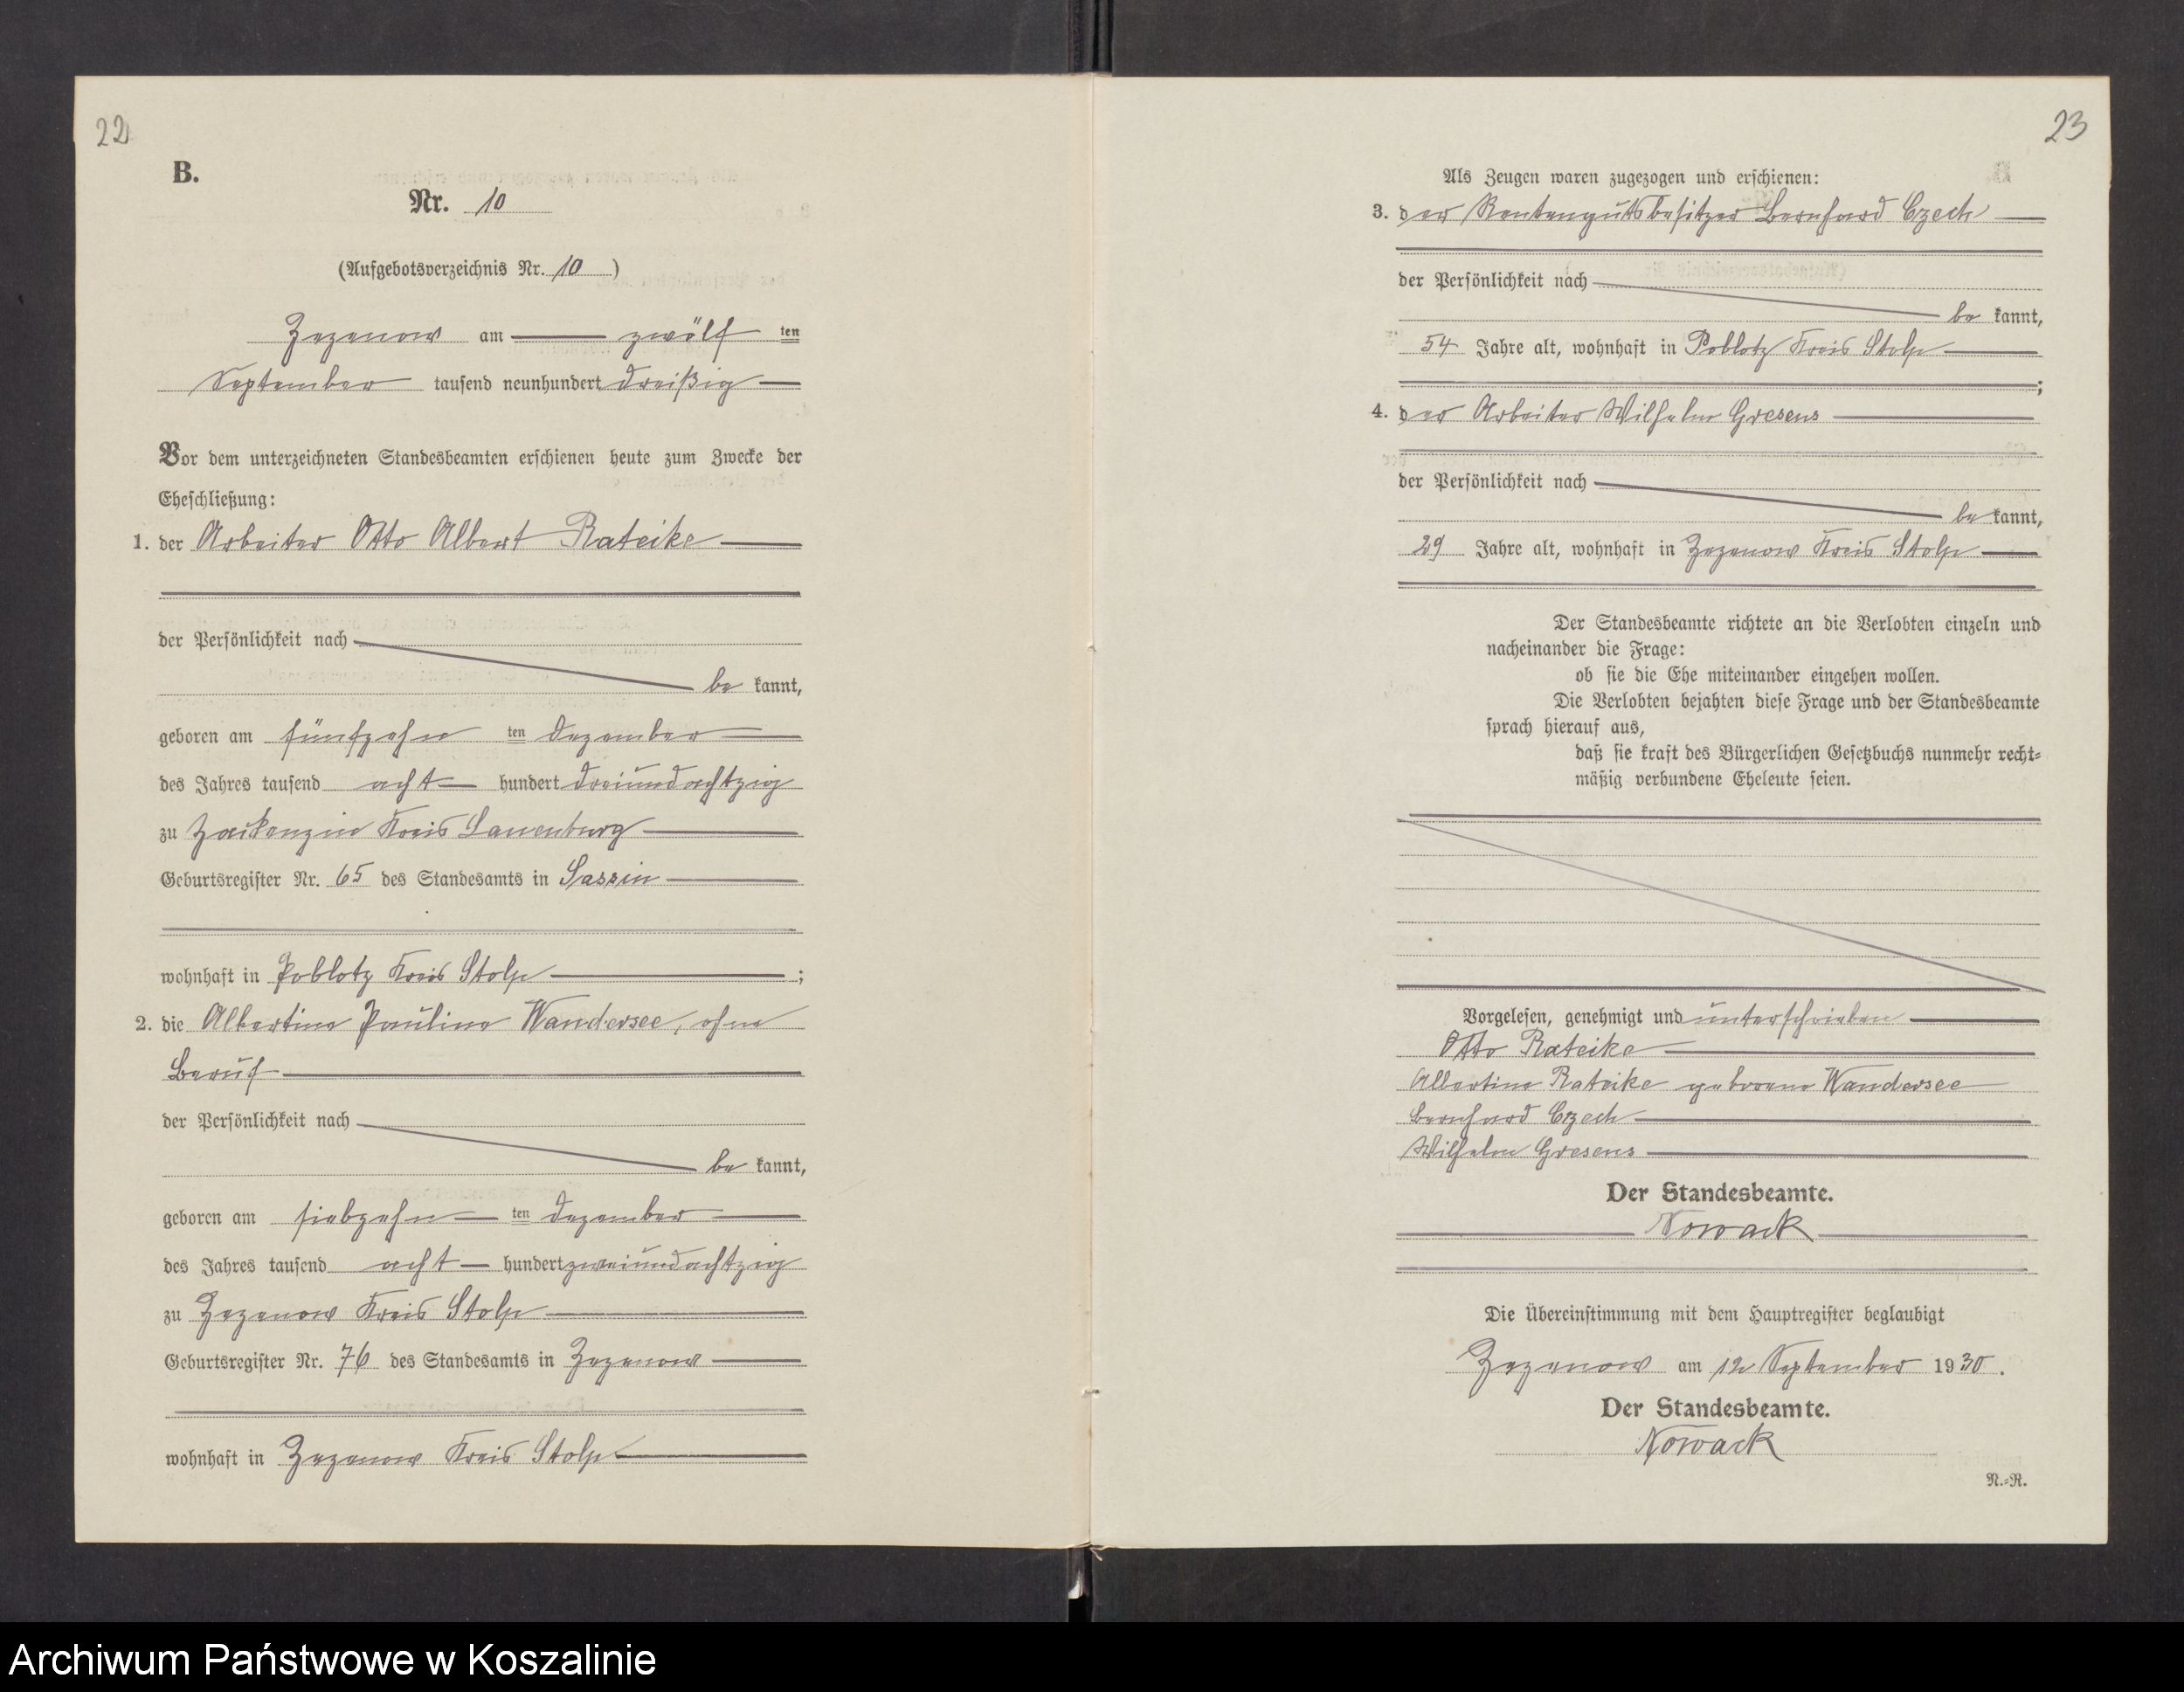 22
B.
Nr. 10
(Aufgebotsverzeichnis Nr. 10)
Zezenow am zwölf ten
September tausend neunhundert dreißig
Vor dem unterzeichneten Standesbeamten erschienen heute zum Zwecke der
Eheschließung:
1. der Arbeiter Otto Albert Rateike
der Persönlichkeit nach
be kannt,
geboren am fünfzehn ten Dezember
des Jahres tausend acht hundert dreiundachtzig
zu Zackenzin Kreis Lauenburg
Geburtsregister Nr. 65 des Standesamts in Sassin
wohnhaft in Poblotz Kreis Stolp ;
2. die Albertine Pauline Wandersee, ohne
Beruf
der Persönlichkeit nach
be kannt,
geboren am siebzehn ten Dezember
des Jahres tausend acht hundert zweiundachtzig
zu Zezenow Kreis Stolp
Geburtsregister Nr. 76 des Standesamts in Zezenow
wohnhaft in Zezenow Kreis Stolp
23
Als Zeugen waren zugezogen und erschienen:
3. der Rentengutsbesitzer Bernhard Czech
der Persönlichkeit nach
be kannt,
54 Jahre alt, wohnhaft in Poblotz Kreis Stolp
;
4. der Arbeiter Wilhelm Gresens
der Persönlichkeit nach
be kannt,
29 Jahre alt, wohnhaft in Zezenow Kreis Stolp
Der Standesbeamte richtete an die Verlobten einzeln und
nacheinander die Frage:
ob sie die Ehe miteinander eingehen wollen.
Die Verlobten bejahten diese Frage und der Standesbeamte
sprach hierauf aus,
daß sie kraft des Bürgerlichen Gesetzbuchs nunmehr recht-
mäßig verbundene Eheleute seien.
Vorgelesen, genehmigt und unterschrieben
Otto Rateike
Albertine Rateike geborene Wandersee
Bernhard Czech
Wilhelm Gresens
Der Standesbeamte.
Nowack
Die Übereinstimmung mit dem Hauptregister beglaubigt
Zezenow am 12 September 1930.
Der Standesbeamte.
Nowack
N.-R.
Archiwum Państwowe w Koszalinie